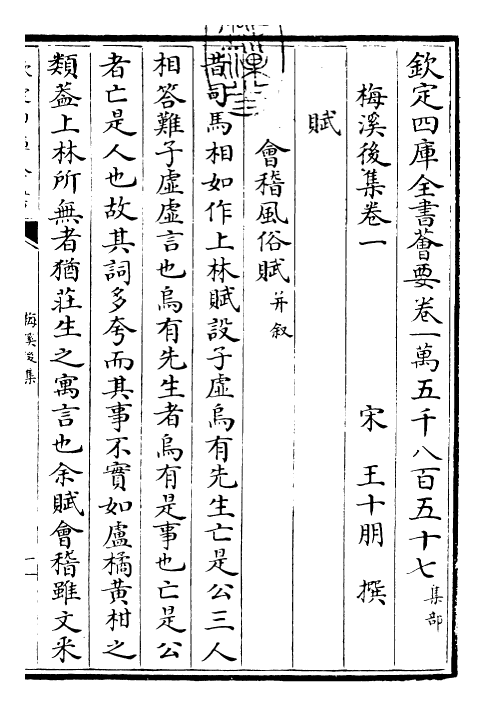 欽定四庫全書薈要卷一萬五千八百五十七集部
梅溪後集卷一　宋　王十朋　撰
賦
會稽風俗賦并叙
昔司馬相如作上林賦設子虛烏有先生亡是公三人
相答難子虛虛言也烏有先生者烏有是事也亡是公
者亡是人也故其詞多夸而其事不實如盧橘黃柑之
類葢上林所無者猶莊生之寓言也余賦會稽雖文采
梅溪後集